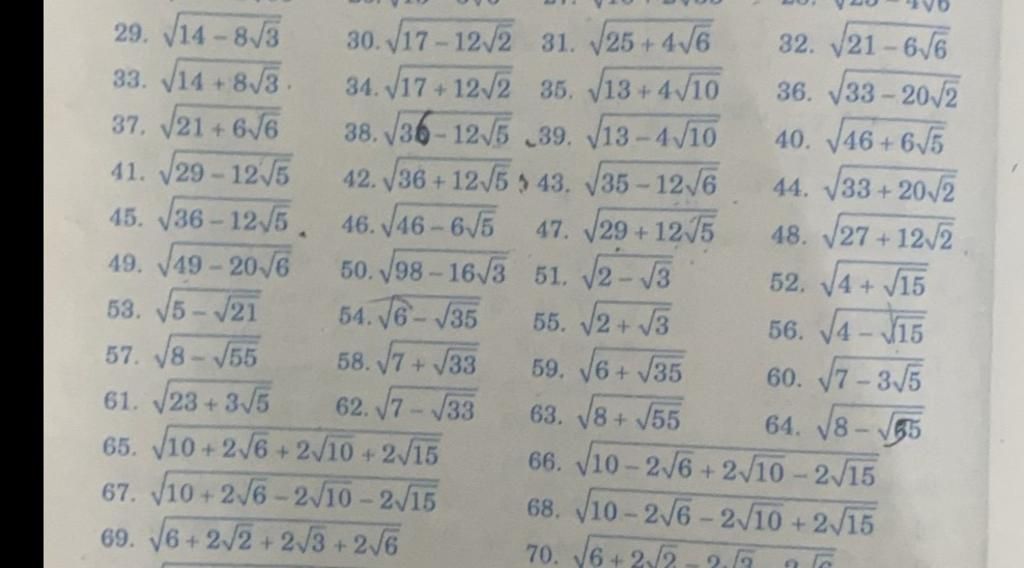 29. √(14 − 8√3) 30. √(17 − 12√2) 31. √(25 + 4√6) 32. √(21 − 6√6)
33. √(14 + 8√3) 34. √(17 + 12√2) 35. √(13 + 4√10) 36. √(33 − 20√2)
37. √(21 + 6√6) 38. √(36 − 12√5) 39. √(13 − 4√10) 40. √(46 + 6√5)
41. √(29 − 12√5) 42. √(36 + 12√5) 43. √(35 − 12√6) 44. √(33 + 20√2)
45. √(36 − 12√5) 46. √(46 − 6√5) 47. √(29 + 12√5) 48. √(27 + 12√2)
49. √(49 − 20√6) 50. √(98 − 16√3) 51. √(2 − √3) 52. √(4 + √15)
53. √(5 − √21) 54. √(6 − √35) 55. √(2 + √3) 56. √(4 − √15)
57. √(8 − √55) 58. √(7 + √33) 59. √(6 + √35) 60. √(7 − 3√5)
61. √(23 + 3√5) 62. √(7 − √33) 63. √(8 + √55) 64. √(8 − √55)
65. √(10 + 2√6 + 2√10 + 2√15) 66. √(10 − 2√6 + 2√10 − 2√15)
67. √(10 + 2√6 − 2√10 − 2√15) 68. √(10 − 2√6 − 2√10 + 2√15)
69. √(6 + 2√2 + 2√3 + 2√6) 70. √(6 + 2√2 − 2√3 − 2√6)